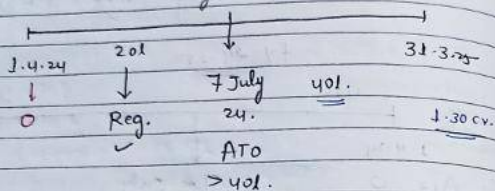 1.4.24 20l 31.3.25
7 July 40l.
0 Reg. 24. 1.30 cr.
ATO
> 40l.